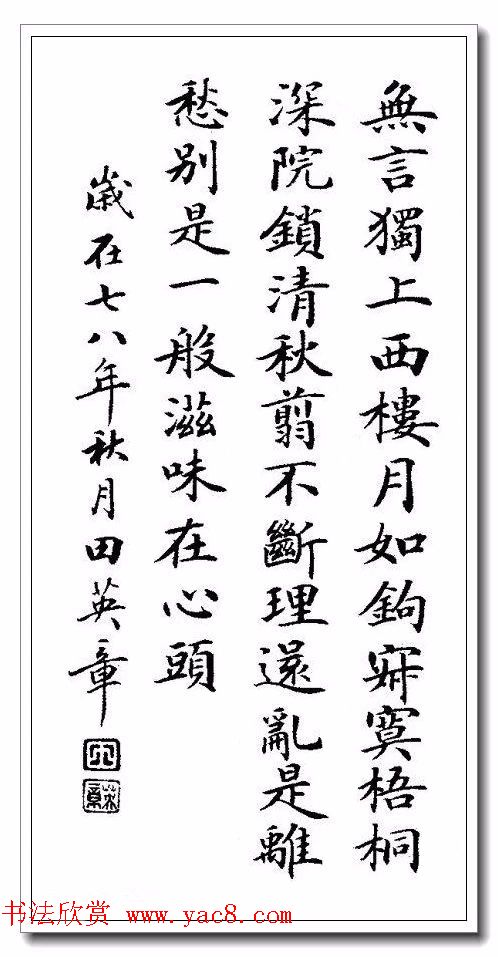 無言獨上西樓月如鉤寂寞梧桐
深院鎖清秋翦不斷理還亂是離
愁別是一般滋味在心頭
歲在七八年秋月田英章
田
英章
书法欣赏 www.yac8.com